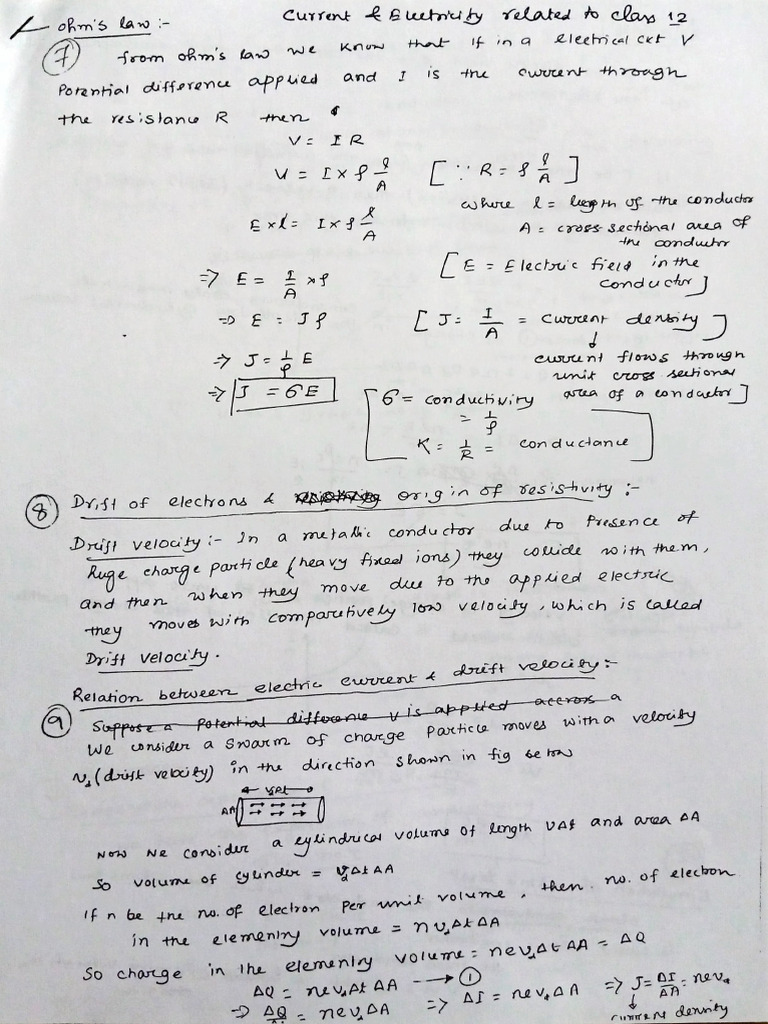 Current & Electricity related to class 12
ohm's law :-
(7) from ohm's law we know that if in a electrical ckt V
Potential difference applied and I is the current through
the resistance R then
V = IR
V = I × ρ l/A [∵ R = ρ l/A]
where l = length of the conductor
E × l = I × ρ l/A
A = cross-sectional area of
the conductor
[E = Electric field in the
conductor]
=> E = I/A × ρ
=> E = Jρ [J = I/A = current density]
↓
current flows through
unit cross sectional
area of a conductor]
=> J = 1/ρ E
=> J = σE
[σ = conductivity
= 1/ρ
K = 1/R = conductance]
(8) Drift of electrons & origin of resistivity :-
Drift velocity :- In a metallic conductor due to Presence of
huge charge particle (heavy fixed ions) they collide with them,
and then when they move due to the applied electric
they moves with comparetively low velocity, which is called
Drift velocity.
Relation between electric current & drift velocity :-
(9) Suppose a Potential difference V is applied accross a
We consider a swarm of charge Particle moves with a velocity
vd (drift velocity) in the direction shown in fig below
vdΔt
ΔA
Now we consider a cylindrical volume of length vΔt and area ΔA
So volume of cylinder = vdΔtΔA
If n be the no. of electron Per unit volume, then no. of electron
in the elementry volume = nvdΔtΔA
So charge in the elementry volume = nevdΔtΔA = ΔQ
ΔQ = nevdΔtΔA → (1)
=> ΔQ/Δt = nevdΔA => ΔI = nevdΔA => J = ΔI/ΔA = nevd
↓
current density